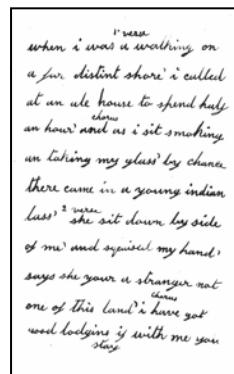 1st verse
when i was a walking on
a far distint shore' i called
at an ale house to spend half
chorus
an hour' and as i sit smoking
an taking my glass' by chance
there came in a young indian
lass' 2 verse she sit down by side
of me' and squised my hand'
says she your a stranger not
chorus
one of this land' i have got
good lodgins if with me you
stay